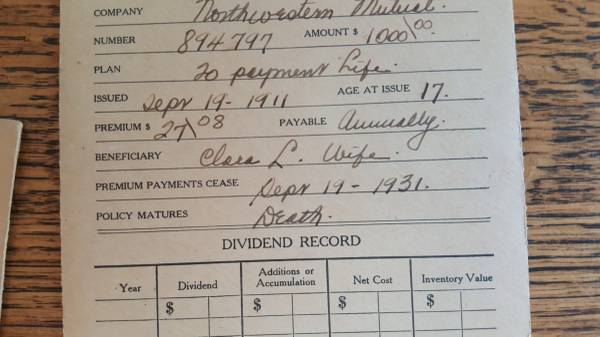 COMPANY Northwestern Mutual.
NUMBER 894797 AMOUNT $ 1000\00
PLAN 20 payment Life.
ISSUED Sept 19-1911 AGE AT ISSUE 17.
PREMIUM $ 27\08 PAYABLE Annually.
BENEFICIARY Clara L. Wife.
PREMIUM PAYMENTS CEASE Sept 19-1931.
POLICY MATURES Death.
DIVIDEND RECORD
Year Dividend Additions or Accumulation Net Cost Inventory Value
$ $ $ $